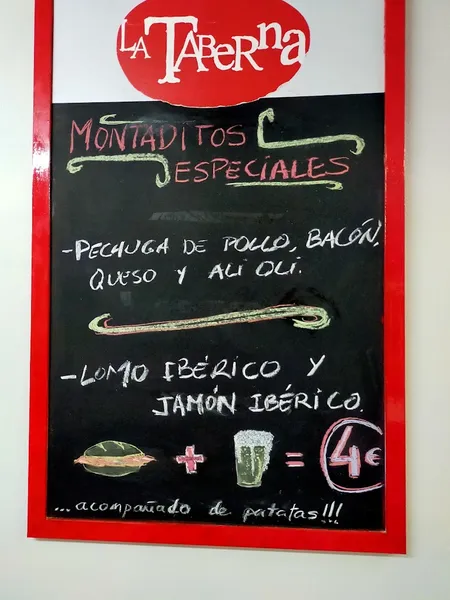 LA TABERNA
MONTADITOS
ESPECIALES
-PECHUGA DE POLLO, BACÓN,
QUESO Y ALI OLI.
-LOMO IBÉRICO Y
JAMÓN IBÉRICO.
+ = 4€
...acompañado de patatas!!!